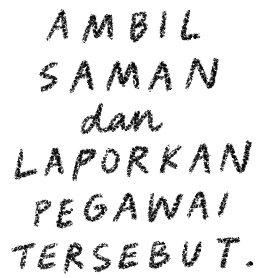 AMBIL
SAMAN
dan
LAPORKAN
PEGAWAI
TERSEBUT.